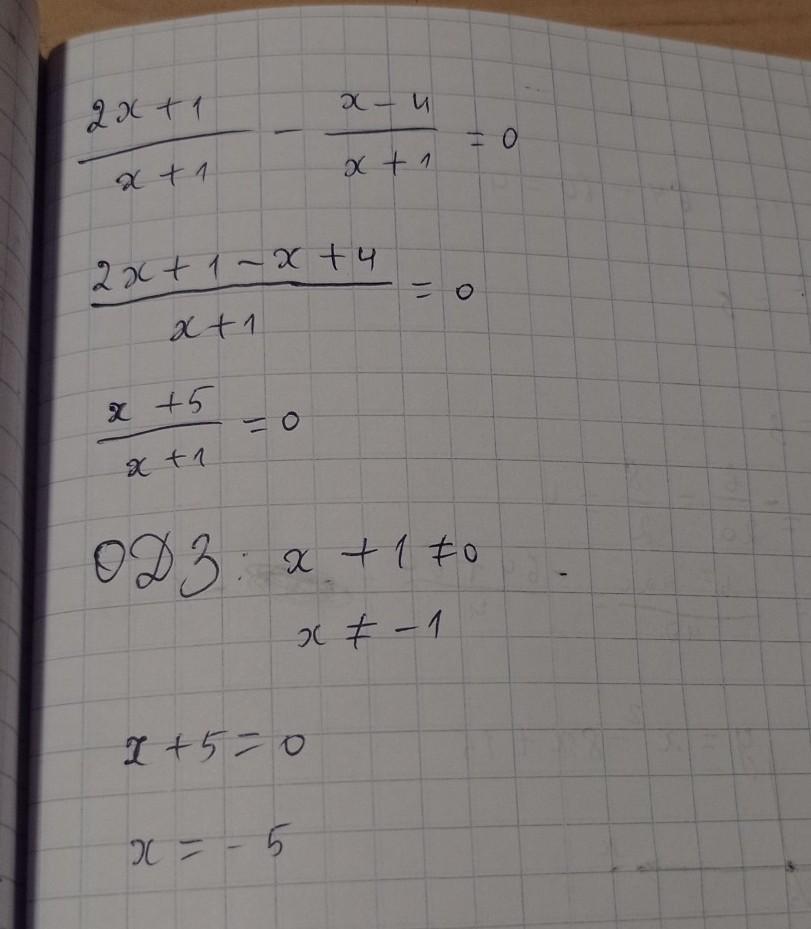 2x+1/x+1 - x-4/x+1 = 0
2x+1-x+4/x+1 = 0
x+5/x+1 = 0
ОДЗ: x+1≠0
x≠-1
x+5=0
x=-5